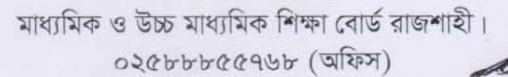 মাধ্যমিক ও উচ্চ মাধ্যমিক শিক্ষা বোর্ড রাজশাহী।
০২৫৮৮৮৫৫৭৬৮ (অফিস)